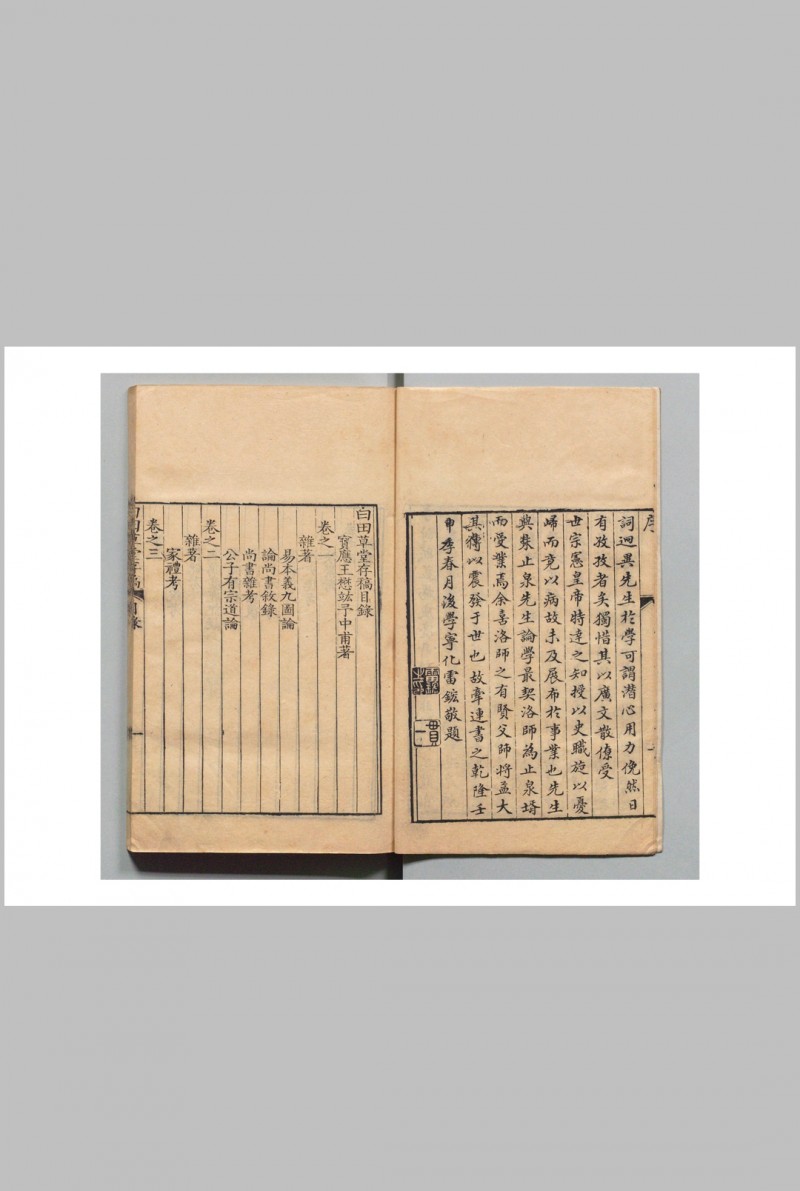 序
詞迥異先生於學可謂潛心用力俛然日
有孜孜者矣獨惜其以廣文散僚受
世宗憲皇帝特達之知授以史職施以憂
歸而竟以病故未及展布於事業也先生
與朱止泉先生論學最契洛師為止泉壻
而受業焉余喜洛師之有賢父師將益大
其傳以震發于世也故牽連書之乾隆壬
申季春月後學寧化雷鋐敬題
一貫
白田草堂存稿目錄
寶應王懋竑予中甫著
卷之一
雜著
易本義九圖論
論尚書敘錄
尚書雜考
公子有宗道論
卷之二
雜著
家禮考
卷之三
白田草堂存稿 目錄 一